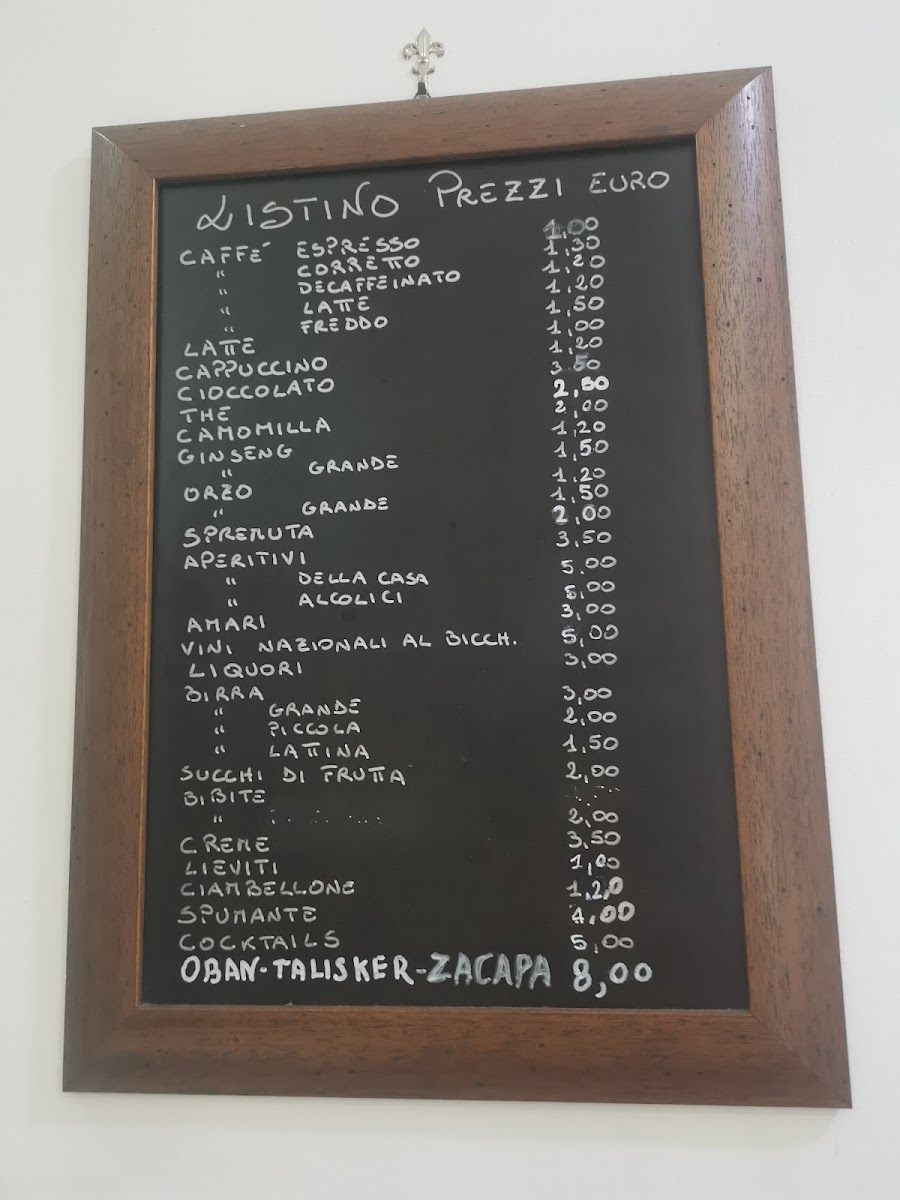 LISTINO PREZZI EURO
CAFFÈ ESPRESSO 1,00
" CORRETTO 1,30
" DECAFFEINATO 1,20
" LATTE 1,20
" FREDDO 1,50
LATTE 1,00
CAPPUCCINO 1,20
CIOCCOLATO 3,50
THE 2,50
CAMOMILLA 2,00
GINSENG 1,20
" GRANDE 1,50
ORZO 1,20
" GRANDE 1,50
SPREMUTA 2,00
APERITIVI 3,50
" DELLA CASA 5,00
" ALCOLICI 6,00
AMARI 3,00
VINI NAZIONALI AL BICCH. 5,00
LIQUORI 3,00
BIRRA
" GRANDE 3,00
" PICCOLA 2,00
" LATTINA 1,50
SUCCHI DI FRUTTA 2,00
BIBITE
" 2,00
CREME 3,50
LIEVITI 1,00
CIAMBELLONE 1,20
SPUMANTE 4,00
COCKTAILS 5,00
OBAN-TALISKER-ZACAPA 8,00